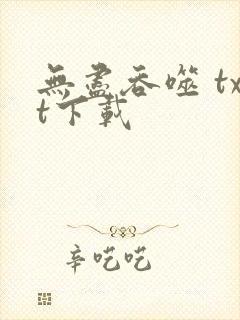 無盡吞噬 tx
t下載
辛吃吃